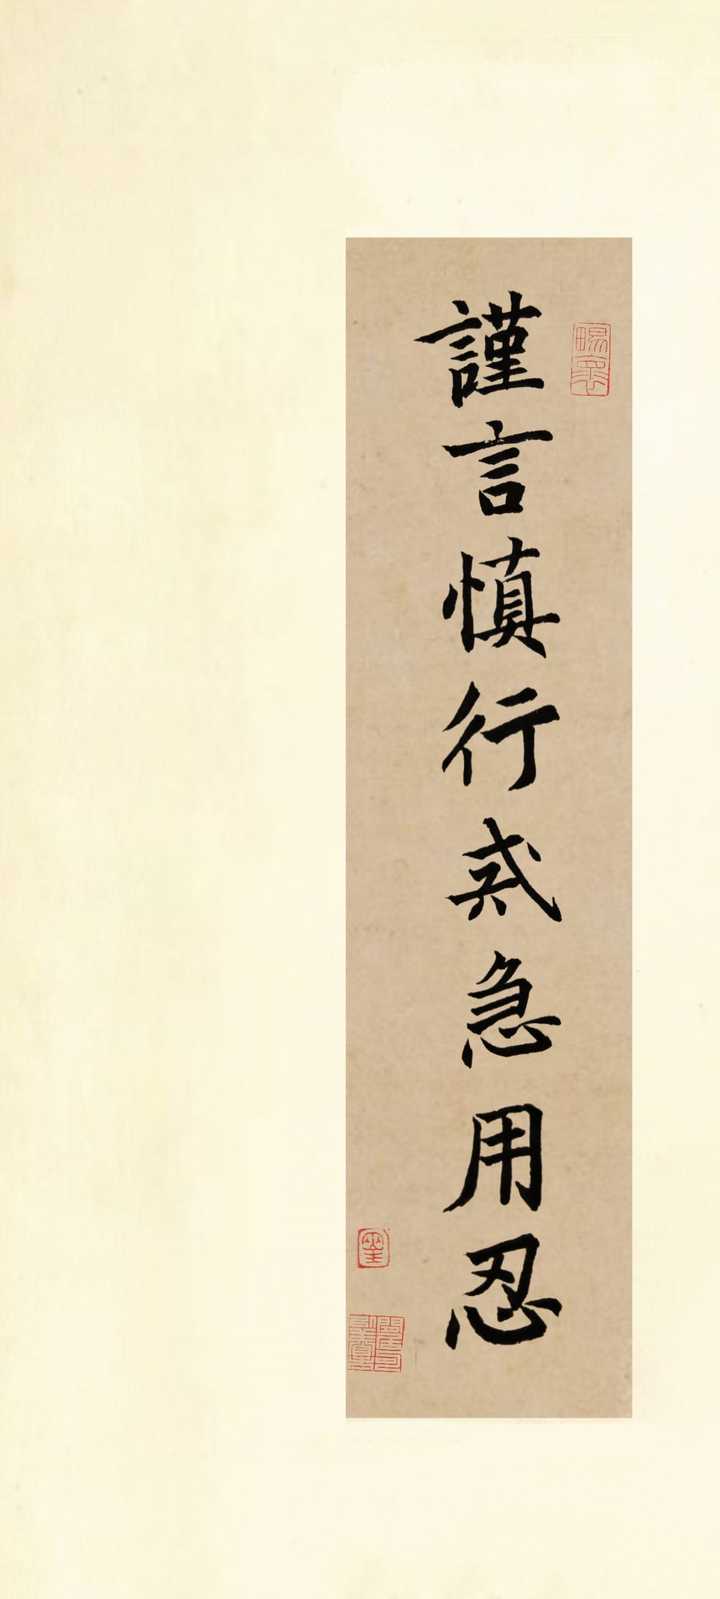 謹言慎行戒急用忍